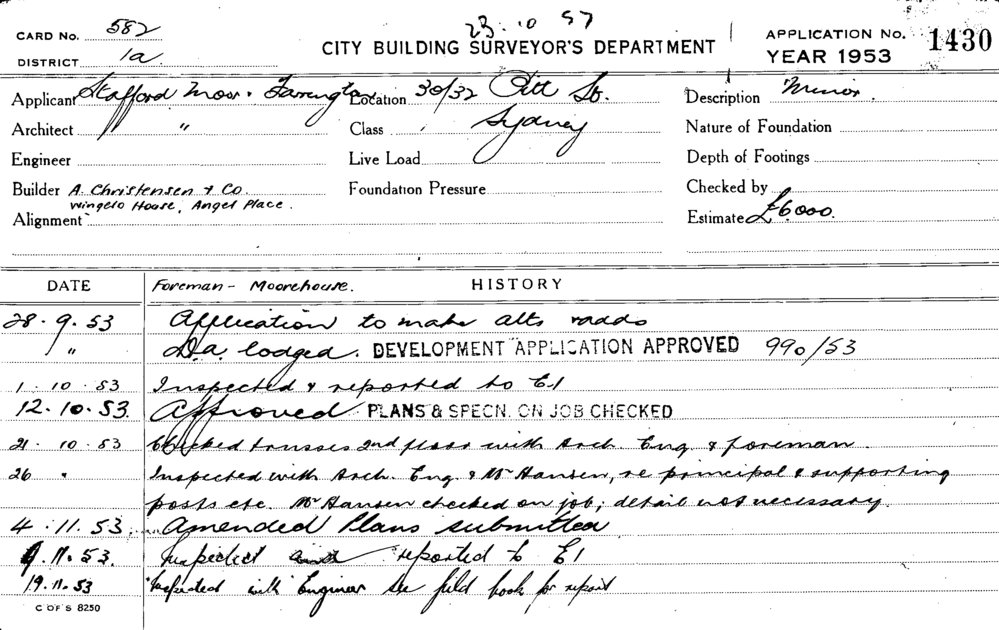 23.10.57
CARD No. 582
CITY BUILDING SURVEYOR'S DEPARTMENT
APPLICATION No. 1430
DISTRICT 1a
YEAR 1953
Applicant Stafford Moor & Farrington Location 30/32 Pitt St. Description Minor.
Architect " Class Sydney Nature of Foundation
Engineer Live Load Depth of Footings
Builder A. Christensen & Co Foundation Pressure Checked by
Wingelo House, Angel Place.
Alignment Estimate £6000.
DATE Foreman - Moorehouse. HISTORY
28.9.53 Application to make alts & adds
" D.a. lodged. DEVELOPMENT APPLICATION APPROVED 990/53
1.10.53 Inspected & reported to E1
12.10.53. Approved PLANS & SPECN. ON JOB CHECKED
21.10.53 Checked trusses 2nd floor with Arch. Eng. & foreman
26 " Inspected with Arch. Eng. & Mr Hansen, re principal & supporting
posts etc. Mr Hansen checked on job; detail not necessary.
4.11.53 Amended Plans submitted
9.11.53. Inspected and reported to E1
19.11.53 Inspected with Engineer see field book for report
C OF S 8250